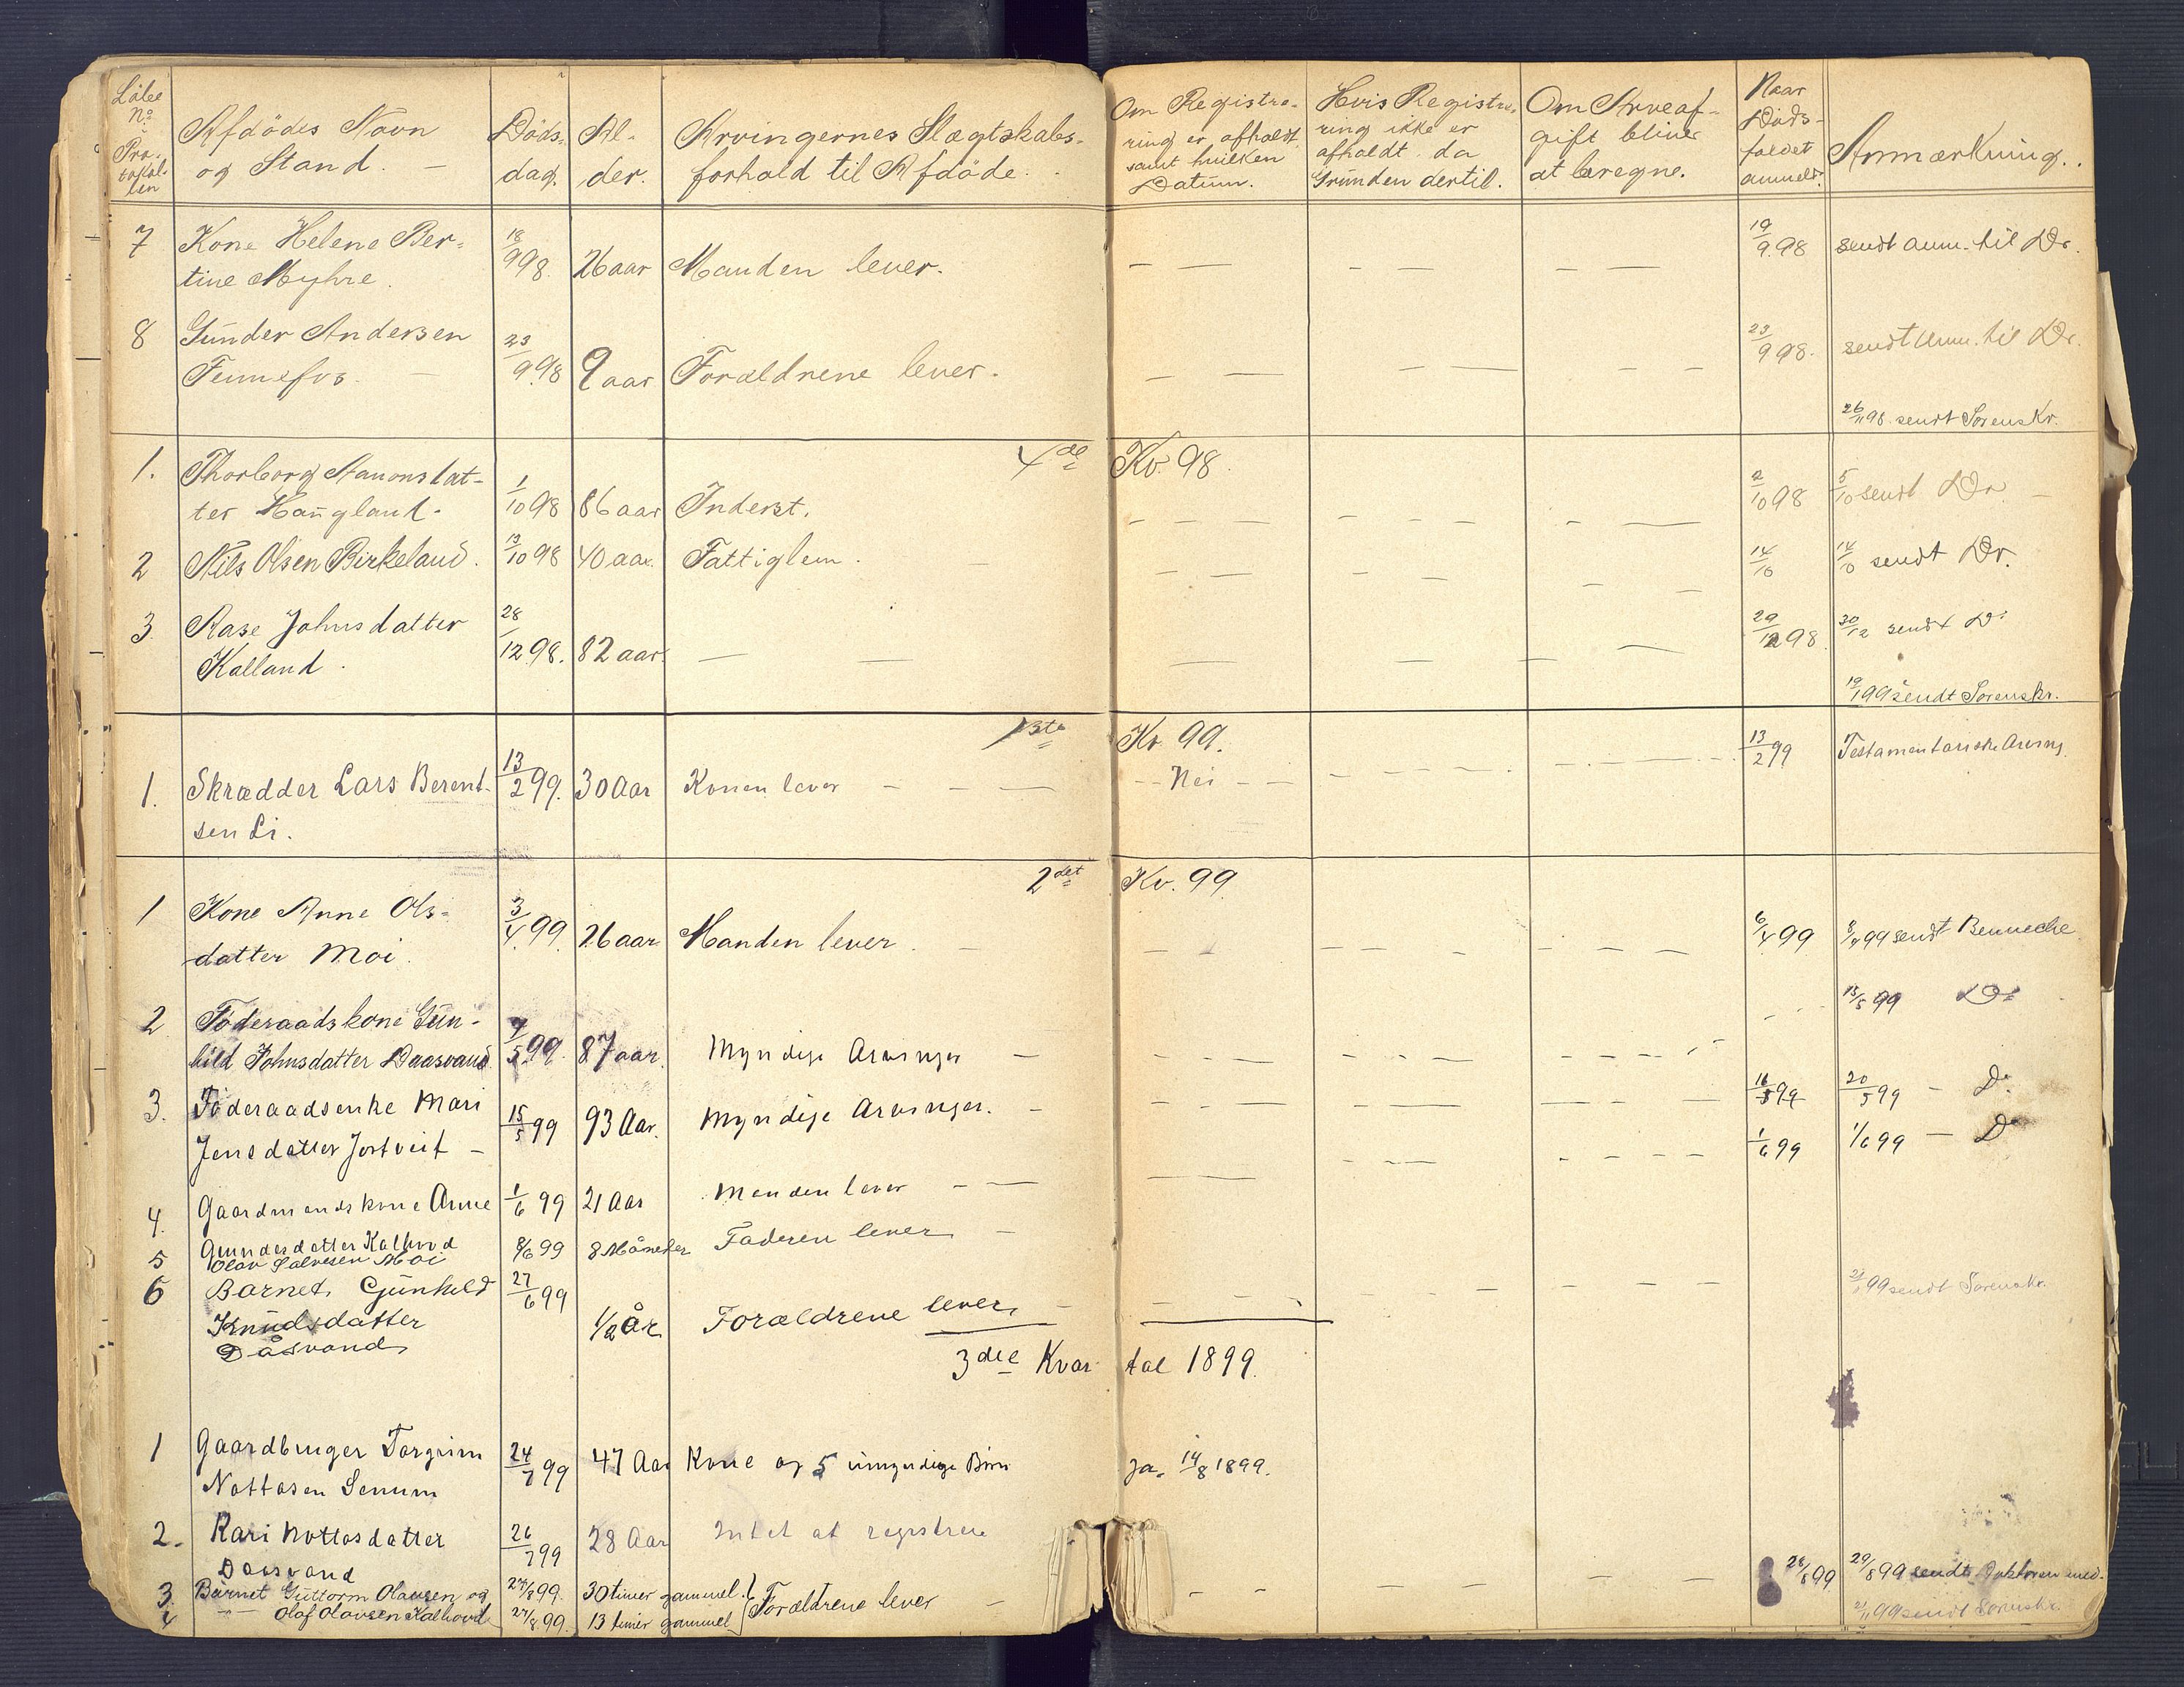 Löbe No i Protokollen | Afdödes Navn og Stand. | Dödsdag. | Alder. | Arvingernes Slægtskabsforhold til Afdöde. | Om Registrering er afholdt samt hvilken Datum. | Hvis Registrering ikke er afholdt da Grunden dertil. | Om Arveafgift bliver at beregne. | Naar Dödsfaldet anmeldt. | Anmærkning.
7 | Kone Helene Ber- | 18/9 98. | 26 aar | Manden lever. | — | — | — | 19/9 98 | sendt anm. til Dr.
tine Myhre.
8 | Gunder Andersen | 23/9 98 | 9 aar | Forældrene lever. | — | — | — | 23/9 98. | sendt anm. til Dr.
Fennefos. —
26/11 98 sendt Sorenskr.
4de Kv. 98.
1. | Thorborg Aanonsdat- | 1/10 98 | 86 aar | Inderst. | — | — | — | 2/10 98 | 5/10 sendt Dr. —
ter Haugland.
2 | Nils Olsen Birkeland. | 13/10 98 | 40 aar. | Fattiglem. | — | — | — | 14/10 | 14/10 sendt Dr.
3. | Aase Johnsdatter | 28/12 98. | 82 aar. | — | — | — | — | 29/12 98 | 30/12 sendt Dr
Kalland.
19/1 99 sendt Sorenskr.
1ste Kv. 99.
1. | Skrædder Lars Berent- | 13/2 99. | 30 Aar | Konen lever | Nei | — | — | 13/2 99 | Testamentariske Arving
sen Li.
2det Kv. 99
1 | Kone Anne Ols- | 3/4 99 | 26 aar | Manden lever. | — | — | — | 6/4 99 | 8/4 99 sendt Benneche
datter Moi.
2 | Föderaadskone Gun- | 7/5 99. | 87 aar. | Myndige Arvinger | — | — | — | — | 13/5 99 Do
hild Johnsdatter Daasvand
3. | Föderaadsenke Mari | 15/5 99 | 93 Aar. | Myndige Arvinger. | — | — | — | 16/5 99 | 20/5 99 — Do
Jensdatter Jortveit —
4. | Gaardmandskone Anne | 1/6 99 | 21 Aar | Manden lever | — | — | — | 1/6 99 | 1/6 99 — Do
Gundersdatter Kalhovd
5 | Olav Salvesen Moi | 8/6 99 | 8 Måneder | Faderen lever —
6 | Barnet Gunhild | 27/6 99 | 1/2 år | Forældrene lever, | — | — | — | | 99 sendt Sorenskr.
Knudsdatter
Dåsvand
3die Kvartal 1899.
1 | Gaardbruger Torgrim | 24/7 99 | 47 Aar | Kone og 5 umyndige Börn | Ja. 14/8 1899.
Nottosen Senum
2. | Kari Nottosdatter | 26/7 99 | 28 Aar | Intet at registrere
Daasvand
3. | Barnet Guttorm Olavsen og | 27/8 99. | 30 timer gammel. | Forældrene lever | — | — | — | 28/8 99 | 29/8 99 sendt Doktoren med.
4 | — Olaf Olavsen Kalhovd | 27/8 99. | 13 timer gammel | | | | | | 21/11 99 sendt Sorenskr.